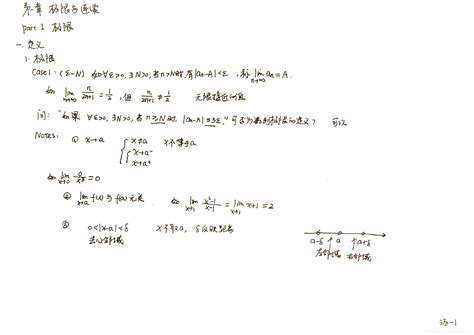 第一章 极限与连续
part 1 极限
一. 定义
1. 极限
Case1: (ε-N) 如∀ε>0, ∃N>0, 当n>N时, |an-A|<ε, 称 lim n→∞ an = A.
如 lim n→∞ n/2n+1 = 1/2, 但 n/2n+1 ≠ 1/2 无限接近的值
问: "如果 ∀ε>0, ∃N>0, 当 n≥N时, |an-A|≤3ε," 可否为数列极限的定义? 可以
Notes: ① x→a { x≠a x不等于a
x→a⁻
x→a⁺
如 lim x→0 = 0
② lim x→a f(x) 与 f(a) 无关 如 lim x→1 x²-1/x-1 = lim x→1 x+1 = 2
③ 0<|x-a|<δ x不取a, δ仅取距离
去心邻域
a-δ a a+δ
左邻域 右邻域
-1